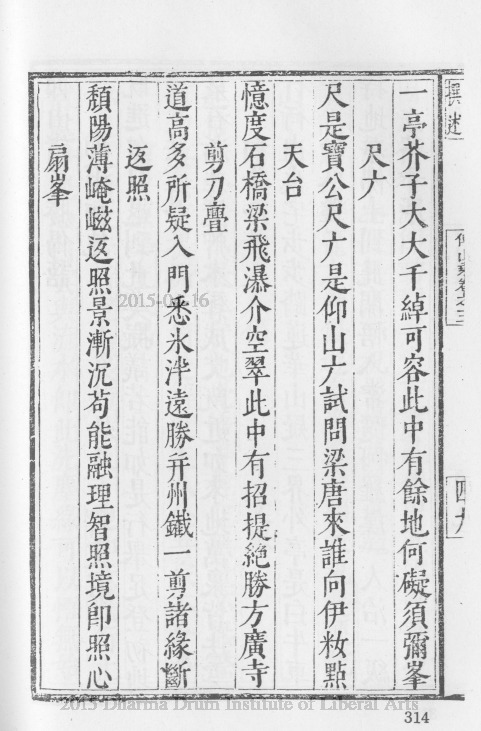 撰述
卷之三
四九
一亭芥子大大千綽可容此中有餘地何礙須彌峯
尺
尺是寶公尺是仰山試問梁唐來誰向伊籹點
天台
憶度石橋梁飛瀑介空翠此中有招提絕勝方廣寺
剪刀疊
道高多所疑入門悉氷泮遠勝并州鐵一剪諸緣斷
返照
頹陽薄崦嵫返照景漸沉苟能融理智照境卽照心
扇峯
2015 Dharma Drum Institute of Liberal Arts
314